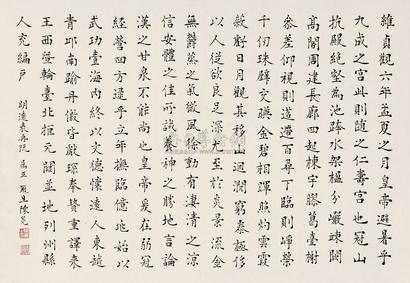 維貞觀六年孟夏之月皇帝避暑乎
九成之宮此則随之仁壽宮也冠山
抗殿絕壑為池跨水架楹分巖竦闕
高閣周建長廊四起棟宇膠葛臺榭
參差仰視則迢遰百尋下臨則崢嶸
千仞珠璧交暎金碧相暉照灼雲霞
蔽虧日月觀其移山迴澗窮泰極侈
以人從欲良足深尤至於炎景流金
無鬱蒸之氣微風徐動有淒清之涼
信安體之佳所誠養神之勝地言論
漢之甘泉不能尚也皇帝爰在弱冠
經營四方逮乎立年撫臨億兆始以
武功壹海內終以文德懷遠人東越
青邱南踰丹徼皆獻琛奉贄重譯來
王西暨輪臺北拒元闕並地列州縣
人充編戶
明遠 屬正 陳冕